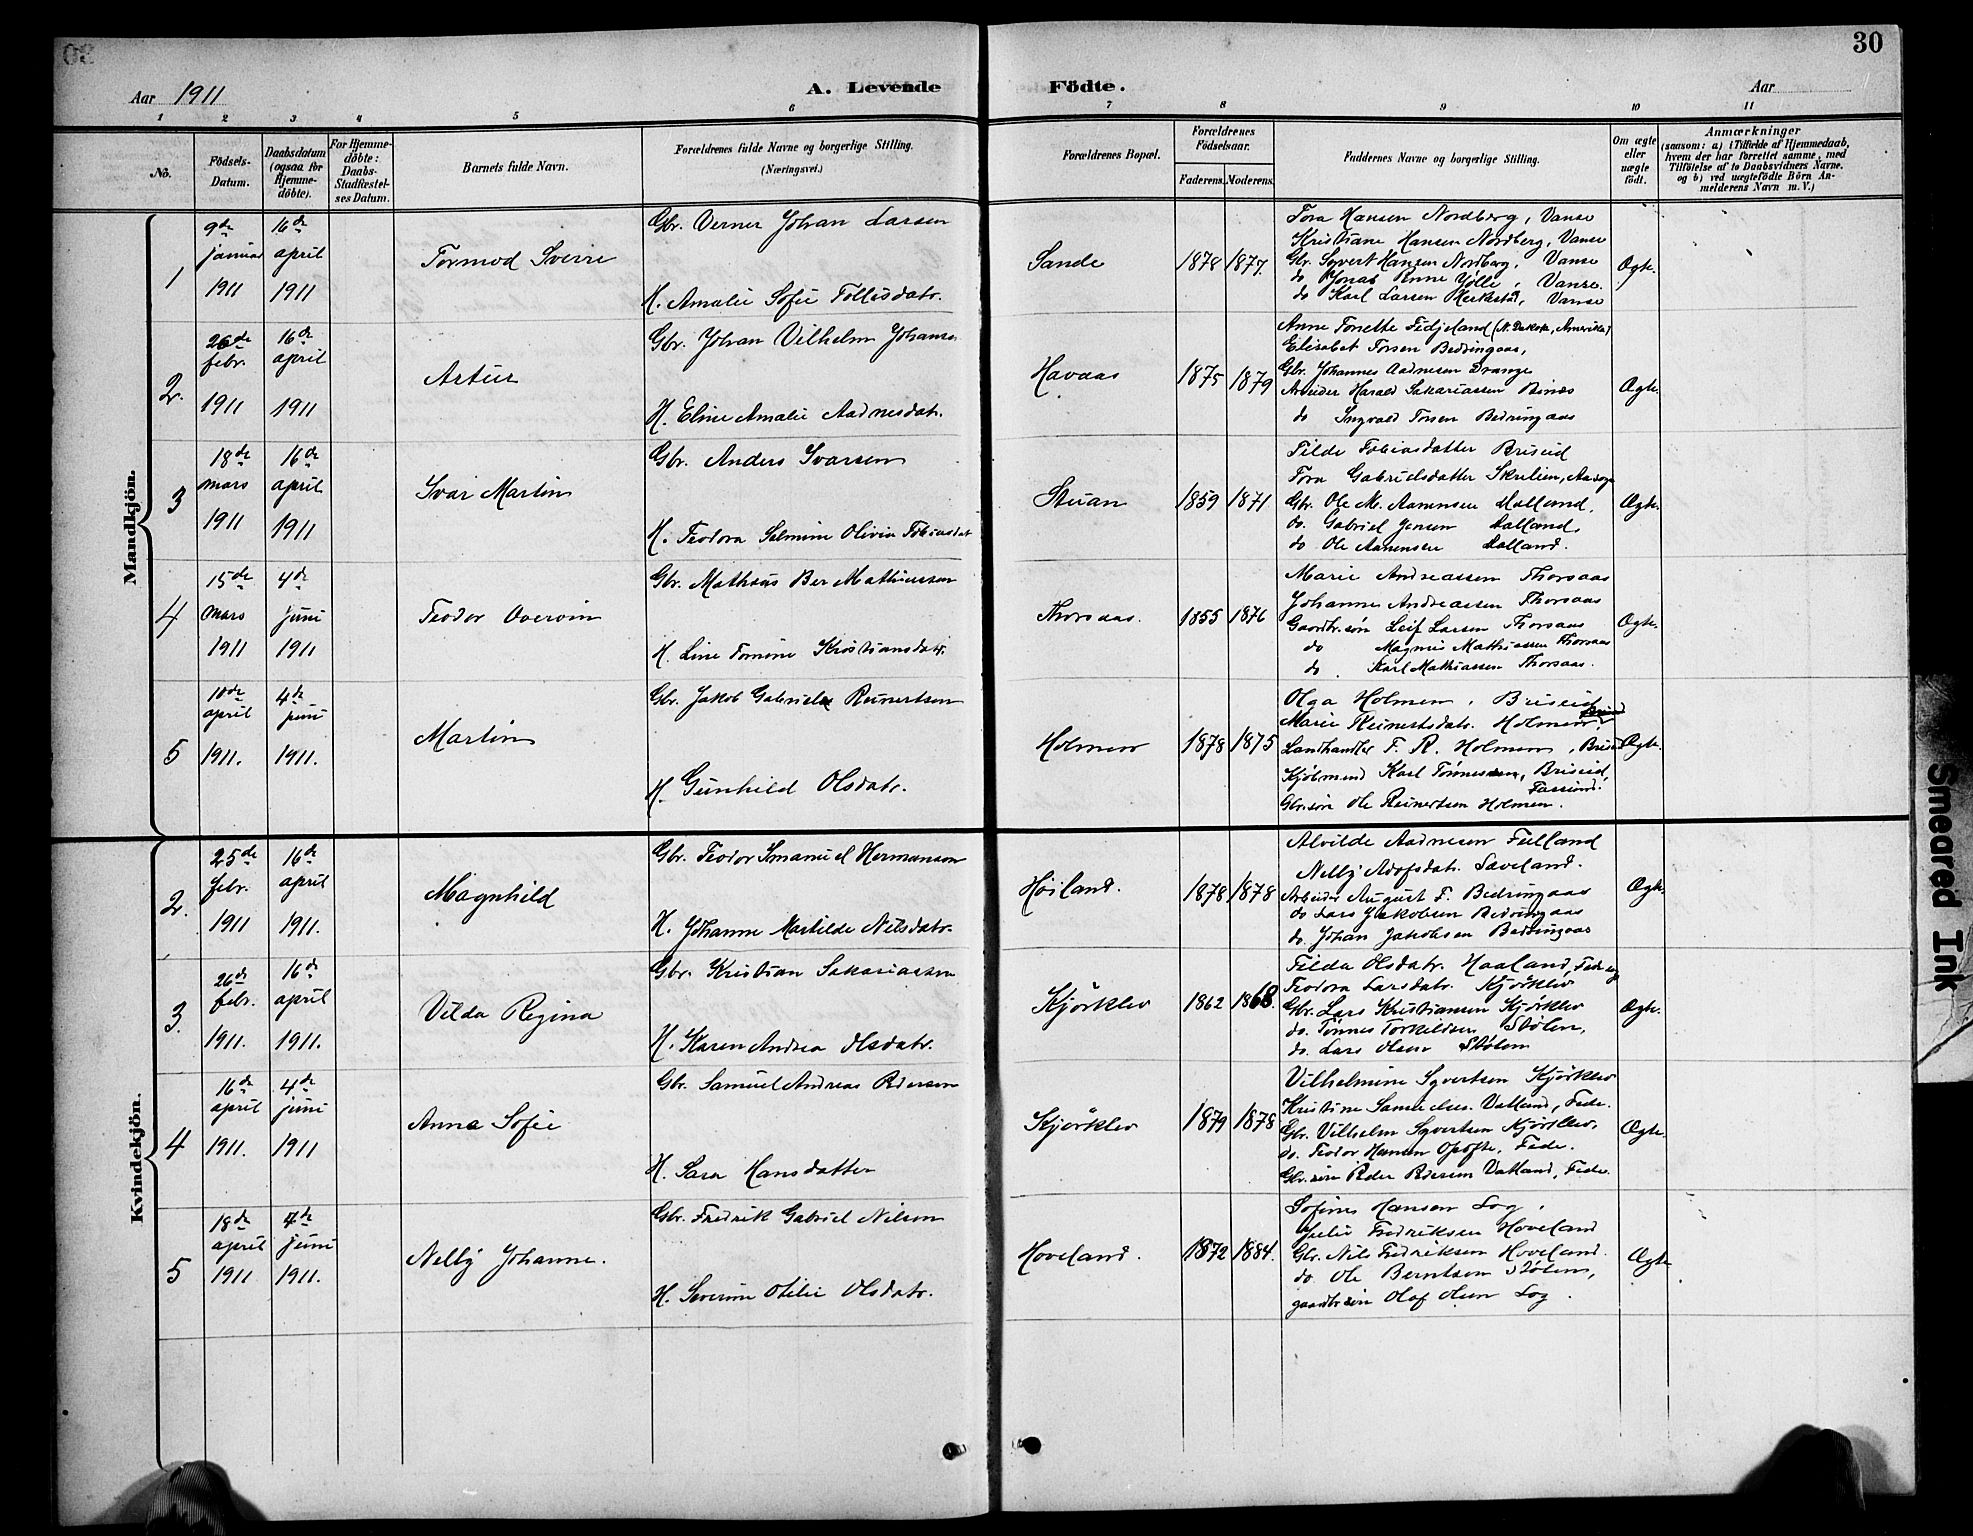 30
Aar 1911
A. Levende
Födte.
Aar
1 2 3 4 5 6 7 8 9 10 11
No.
Födsels-Datum.
Daabsdatum (ogsaa for Hjemmedöbte).
For Hjemmedöbte: Daabs-Stadfæstelses Datum.
Barnets fulde Navn.
Forældrenes fulde Navne og borgerlige Stilling. (Næringsvei.)
Forældrenes Bopæl.
Forældrenes Födselsaar.
Faderens. Moderens.
Faddernes Navne og borgerlige Stilling.
Om ægte eller uægte födt.
Anmærkninger (saasom: a) i Tilfælde af Hjemmedaab, hvem der har forrettet samme, med Tilföielse af to Daabsvidners Navne, og b) ved uægtefödte Börn Anmelderens Navn m. V.)
Mandkjön.
1
9de januar 1911
16de april 1911
Tormod Sverre
Gbr. Verner Johan Larsen
H. Amalie Sofie Tollisdatr.
Sande
1878 1877.
Tora Hansen Nordberg, Vanse
Kristiane Hansen Nordberg, Vanse
Gbr. Syvert Hansen Nordberg, Vanse
do Jonas Rinne Jölle, Vanse.
do Karl Larsen, Vanse
Ægte.
2.
26de febr. 1911
16de april 1911
Artur
Gbr. Johan Vilhelm Johanse
H. Eline Amalie Aadnesdatr.
Havaas
1875 1879
Anne Tonette Fidjeland (N. Dakota, Amerika)
Elisabet Torsen Bedringaas,
Gbr. Johannes Aadnesen Drange
Arbeider Harald Sakariassen Binas
do Ingvald Torsen Bedringaas
Ægte.
3
18de mars 1911
16de april 1911
Ivar Martin
Gbr. Anders Ivarsen
H. Teodora Selmine Olivia Tobiasdat
Stuan
1859 1871
Tilde Tobiasdatter Briseid
Tora Gabrielsdatter Skrelien,
Gbr. Ole M. Aanensen Aalland,
do. Gabriel Jensen Aalland,
do Ole Aanensen Aalland.
Ægte.
4
15de mars 1911
4de juni 1911
Teodor Overvin
Gbr. Mathias Ber Mathiassen
H. Line Tomine Kristiansdatr.
Thorsaas.
1855 1876
Marie Andreassen Thorsaas
Johanne Andreassen Thorsaas
Gaardbr.søn Leif Larsen Thorsaas
do Magnus Mathiassen Thorsaas
do. Karl Mathiassen Thorsaas.
Ægte.
5
10de april 1911.
4de juni 1911.
Martin
Gbr. Jakob Gabriel Reinertsen
H. Gunhild Olsdatr.
Holmen
1878 1875
Olga Holmen, Briseid
Marie Reinertsdatr. Holmen
Landhandler F. R. Holmen, Briseid
Kjøbmand Karl Tønnessen, Briseid, Farsund.
Gbr.søn Ole Reinertsen Holmen.
Ægte.
Kvindekjön.
2.
25de febr. 1911
16de april 1911.
Magnhild
Gbr. Teodor Emanuel Hermansen
H. Johanne Martilde Nilsdatr.
Høiland.
1878 1878
Alvilde Aadnesen Feiland
Nelly Adofsdatr. Saveland.
Arbeider August F. Bedringaas
do Lars Jakobsen Bedringaas
do. Johan Jakobsen Bedringaas
Ægte.
3.
26de febr. 1911.
16de april 1911.
Vilda Regina
Gbr. Kristian Sakariassen
H. Karen Andrea Olsdatr.
Kjörklev
1862 1868.
Tilda Olsdatr. Haaland,
Teodora Larsdatr. Kjørklev
Gbr. Lars Kristiansen Kjørklev
do. Tønnes Torkildsen Stølen,
do. Lars Olsen Stølen
Ægte.
4
16de april 1911.
4de juni 1911
Anna Sofie
Gbr. Samuel Andreas Pedersen
H. Sara Hansdatter
Kjörklev
1879 1878
Vilhelmine Syvertsen Kjørklev
Kristine Samuelsen Vatland, Fede.
Gbr. Vilhelm Syvertsen Kjørklev,
do. Teodor Hansen Opofte, Fede.
Gbr.søn Peder Pedersen Vatland, Fede.
Ægte.
5
18de april 1911
7de juni 1911.
Nelly Johanne.
Gbr. Fredrik Gabriel Nilsen
H. Severine Otilie Olsdatr.
Hoveland.
1872 1884.
Sofine Hansen Log,
Julie Fredriksen Hoveland
Gbr. Nils Fredriksen Hoveland.
do. Ole Berntsen Stølen,
gaardbr.søn Olaf Olsen Log.
Ægte
Smeared Ink